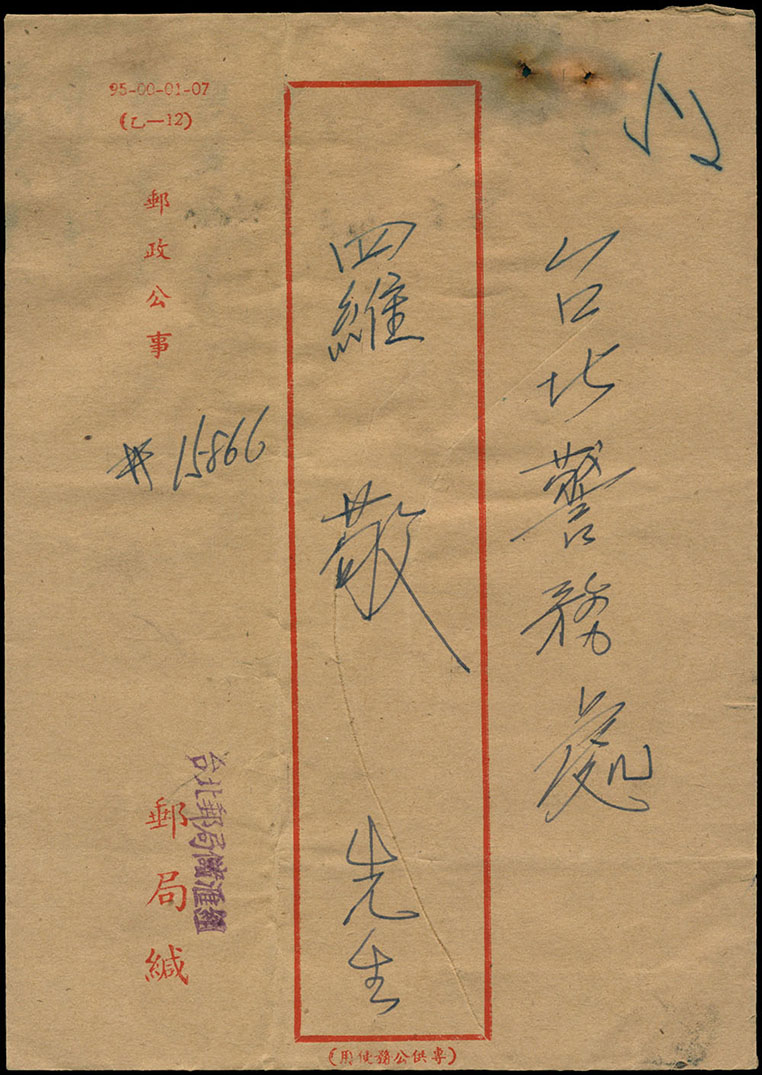 台北警務處
羅 敬 先生
95-00-01-07
(乙一12)
郵政公事
#15866
郵局緘
台北郵局儲匯組
(專供公務使用)